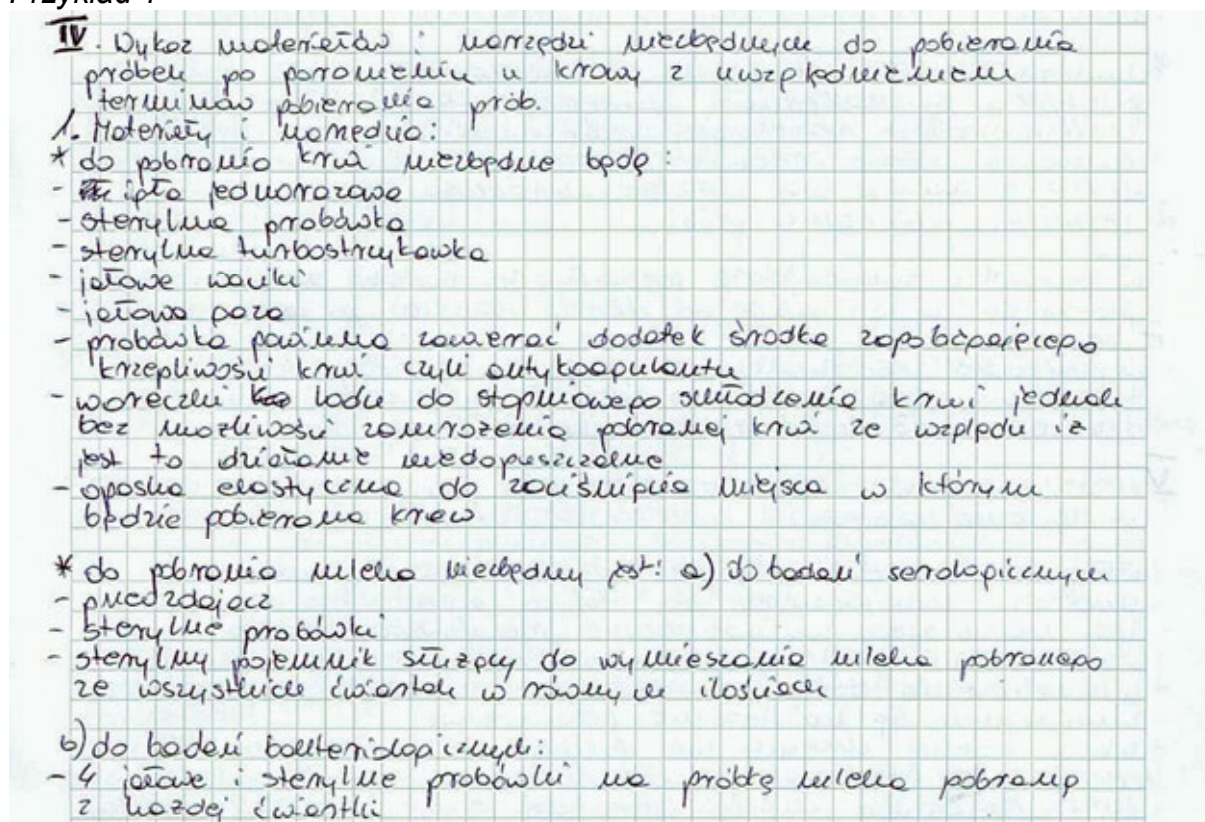 Przykład 1
IV. Wykaz materiałów i narzędzi niezbędnych do pobierania
próbek po poronieniu u krowy z uwzględnieniem
terminów pobierania prób.
1. Materiały i narzędzia:
* do pobrania krwi niezbędne będę:
- igła jednorazowa
- sterylna probówka
- sterylna turbostrzykawka
- jałowe waciki
- jałowa gaza
- probówka powinna zawierać dodatek środka zapobiegającego
krzepliwości krwi czyli antykoagulantu
- woreczki lodu do stopniowego schłodzenia krwi jednak
bez możliwości zamrożenia pobranej krwi ze względu iż
jest to działanie niedopuszczalne
- opaska elastyczna do zaciśnięcia miejsca w którym
będzie pobierana krew
* do pobrania mleka niezbędny jest: a) do badań serologicznych
- przedzdajacz
- sterylne probówki
- sterylny pojemnik służący do wymieszania mleka pobranego
ze wszystkich ćwiartek w równych ilościach
b) do badań bakteriologicznych:
- 4 jałowe i sterylne probówki na próbkę mleka pobraną
z każdej ćwiartki